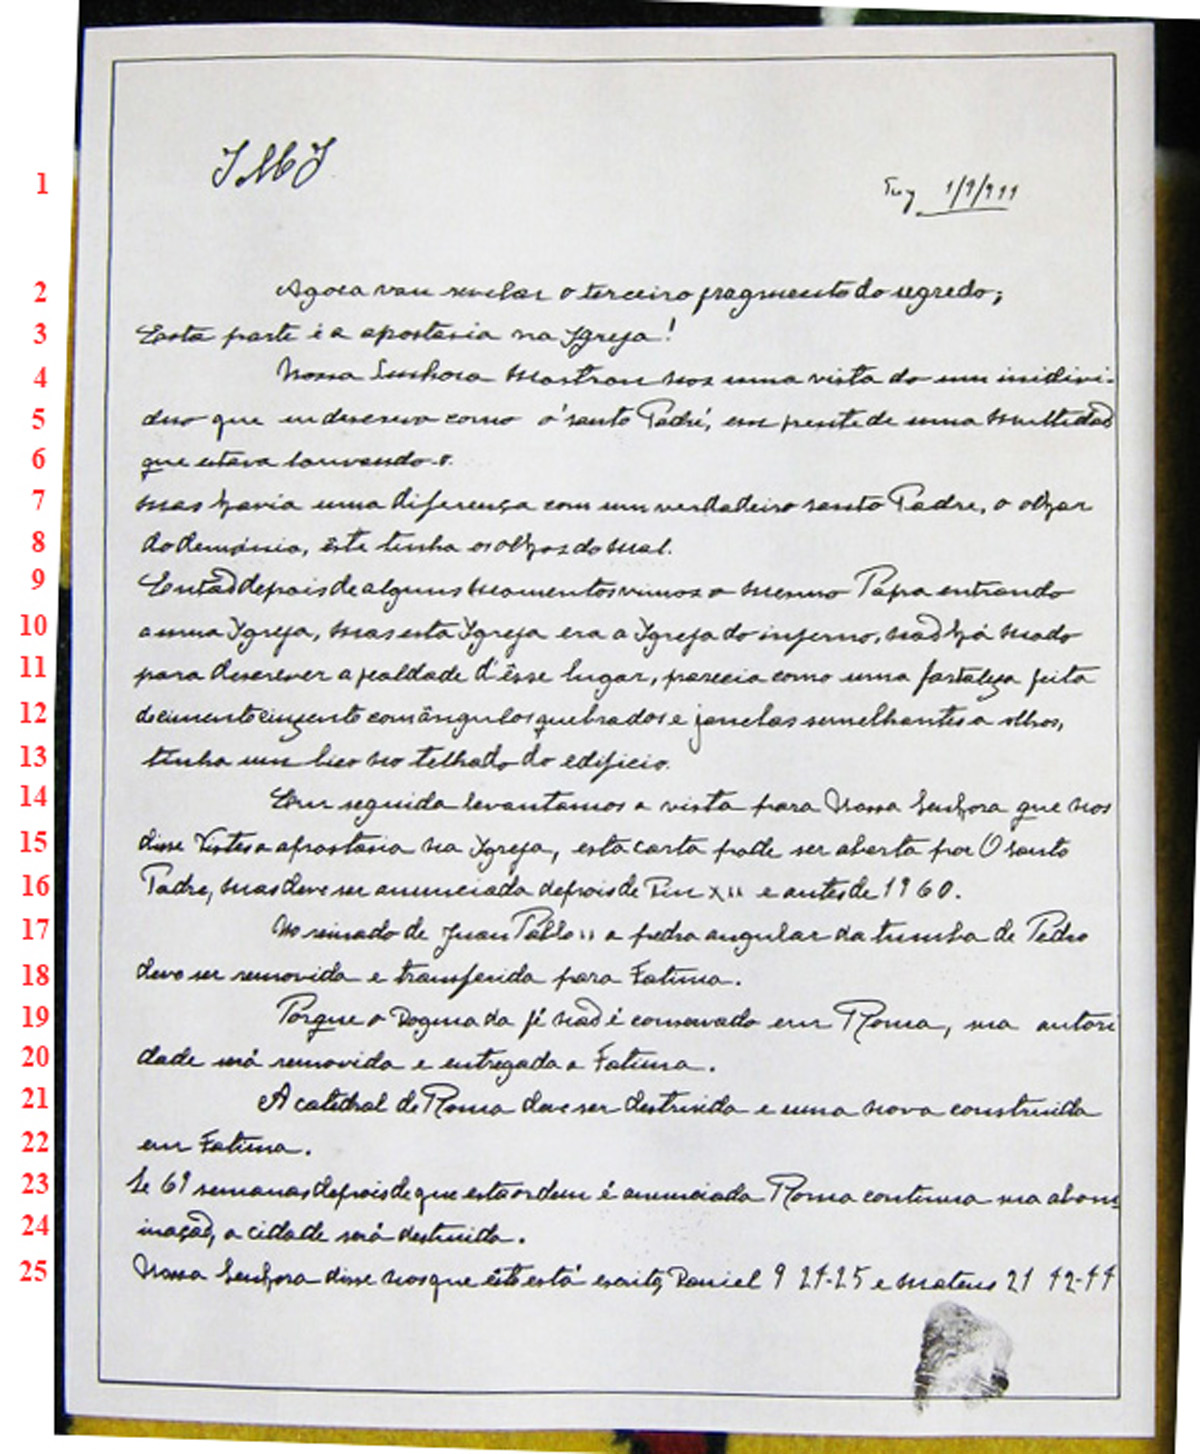 1
JMJ
Tuy 1/9/944
2
Agora vou revelar o terceiro fragmento do segredo;
3
Esta parte é a apostasia na Igreja!
4
Nossa Senhora mostrou nos uma vista do um inidivi-
5
duo que eu descrevo como o 'santo Padre', em frente de uma multidaõ
6
que estava louvando-o.
7
Mas havia uma diferença com um verdadeiro santo Padre, o olhar
8
do demónio, êste tinha os olhos do mal.
9
Entaõ depois de alguns momentos vimos o mesmo Papa entrando
10
a uma Igreja, mas esta Igreja era a Igreja do inferno, naõ há modo
11
para descrever a fealdade d'êsse lugar, parecia como uma fortaleza feita
12
de cimento cinzento com ângulos quebrados e janelas semelhantes a olhos,
13
tinha um bico no telhado do edificio.
14
Em seguida levantamos a vista para Nossa Senhora que nos
15
disse Vistes a apostasia na Igreja, esta carta pode ser aberta por O santo
16
Padre, mas deve ser anunciada depois de Pio XII e antes de 1960.
17
No reinado de Juan Pablo II a pedra angular da tumba de Pedro
18
deve ser removida e transferida para Fatima.
19
Porque o Dogma da fé naõ é conservado em Roma, sua autori
20
dade será removida e entregada a Fatima.
21
A catedral de Roma deve ser destruida e uma nova construida
22
em Fatima.
23
Se 69 semanas depois de que esta ordem é anunciada Roma continua sua abom
24
inaçaõ, a cidade será destruida.
25
Nossa Senhora disse nos que êste está escrito, Daniel 9 24-25 e Mateus 21 42-44